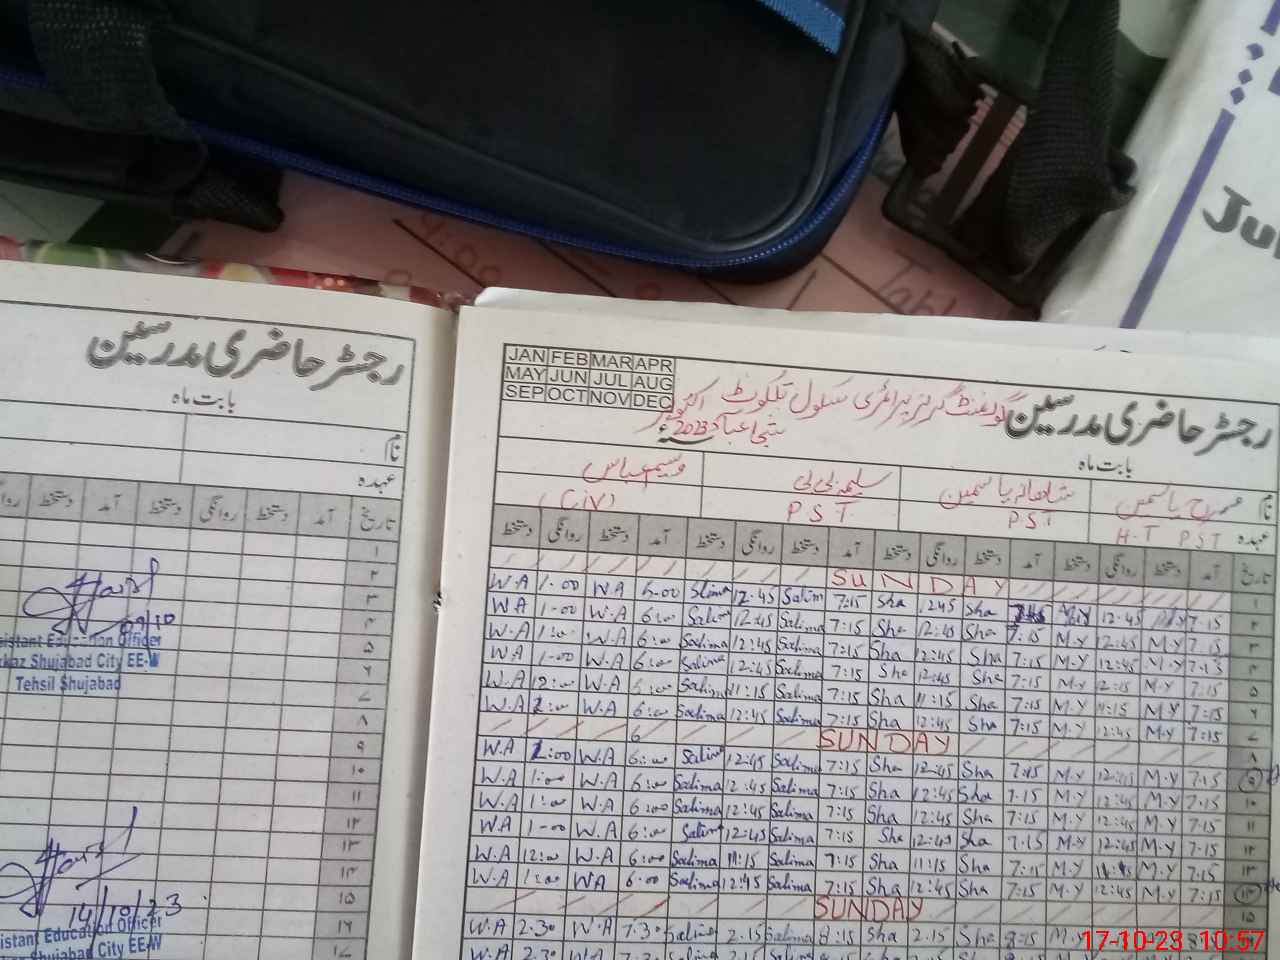 Jul
Tabl
رجسٹر حاضری مدرسین
بابت ماہ
نام
عہدہ
تاریخ آمد دستخط روانگی دستخط آمد دستخط
۱
۲
۳
۴
۵
۶
۷
۸
۹
۱۰
۱۱
۱۲
۱۳
۱۴
۱۵
۱۶
09/10
Assistant Education Officer
Markaz Shujabad City EE-W
Tehsil Shujabad
14/10/23
Assistant Education Officer
Markaz Shujabad City EE-W
JAN FEB MAR APR
MAY JUN JUL AUG
SEP OCT NOV DEC
رجسٹر حاضری مدرسین گورنمنٹ گرلز پرائمری سکول تلکوٹ اکتوبر
شجاعباد 2023ء
بابت ماہ
نام شاہانہ یاسمین سلیمہ بی بی وسیم عباس
عہدہ H.T PST PST PST (C.IV)
تاریخ آمد دستخط روانگی دستخط آمد دستخط روانگی دستخط آمد دستخط روانگی دستخط آمد دستخط روانگی دستخط
SUNDAY ۱
W.A 1-00 W.A 6.00 Slima 12.45 Salim 7:15 Sha 12:45 Sha M.Y 12.45 M.Y 7.15 ۲
WA 1-00 W.A 6:00 Salim 12:45 Salima 7:15 Sha 12:45 Sha 7:15 M.Y 12:45 M.Y 7.15 ۳
W.A 1:00 W.A 6:00 Salima 12:45 Salima 7:15 Sha 12:45 Sha 7:15 M.Y 12:45 M.Y 7.15 ۴
WA 1-00 W.A 6:00 Salima 12:45 Salima 7:15 Sha 12:45 Sha 7:15 M.Y 12:15 M.Y 7:15 ۵
W.A 12:00 W.A 6:00 Salima 11:15 Salima 7:15 Sha 11:15 Sha 7:15 M.Y 11:15 M.Y 7:15 ۶
W.A 1:00 W.A 6:00 Salima 12:45 Salima 7:15 Sha 12:45 Sha 7:15 M.Y 12:45 M.Y 7:15 ۷
SUNDAY ۸
W.A 1:00 W.A 6:00 Salim 12:45 Salima 7:15 Sha 12:45 Sha 7:15 M.Y 12:45 M.Y 7.15 ۹
W.A 1:00 W.A 6:00 Salima 12:45 Salima 7:15 Sha 12:45 Sha 7:15 M.Y 12:45 M.Y 7:15 ۱۰
W.A 1:00 W.A 6:00 Salima 12:45 Salima 7:15 Sha 12:45 Sha 7:15 M.Y 12:45 M.Y 7:15 ۱۱
WA 1-00 W.A 6:00 Salim 12:45 Salima 7:15 Sha 12:45 Sha 7.15 M.Y 12:45 M.Y 7:15 ۱۲
W.A 12:00 W.A 6:00 Salima 11:15 Salima 7:15 Sha 11:15 Sha 7:15 M.Y 11:15 M.Y 7:15 ۱۳
W.A 1:00 WA 6.00 Salima 12:45 Salima 7:15 Sha 12:45 Sha 7:15 M.Y 12:45 M.Y 7:15 ۱۴
SUNDAY ۱۵
W.A 2.30 W.A 7.30 Salima 2.15 Salima 8:15 Sha 2.15 Sha 8:15 M.Y
W.A 2.30 WA 7.30
17-10-23 10:57